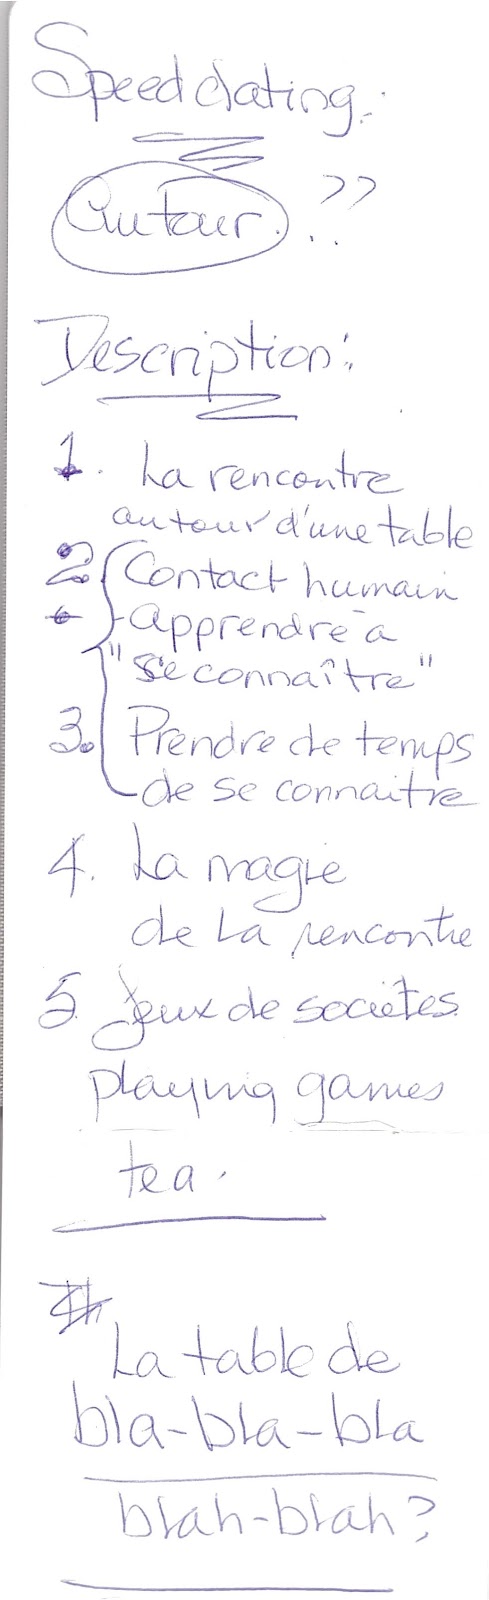 Speed dating.:
autour. ??
Description:
1. La rencontre
autour d'une table
2. Contact humain
- apprendre à
"se connaître"
3. Prendre de temps
de se connaitre
4. La magie
de La rencontre
5. Jeux de sociétés.
playing games
tea.
La table de
bla-bla-bla
blah-blah?